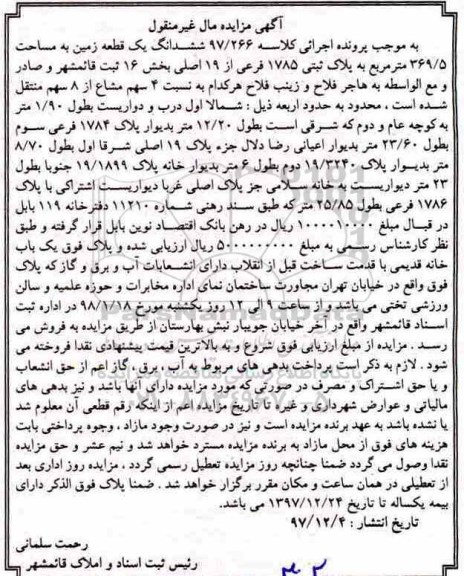 آگهی مزایده مال غیرمنقول
به موجب پرونده اجرائی کلاسه ۹۷/۲۶۶ ششدانگ یک قطعه زمین به مساحت
۳۶۹/۵ مترمربع به پلاک ثبتی ۱۷۸۵ فرعی از ۱۹ اصلی بخش ۱۶ ثبت قائمشهر و صادر
و مع الواسطه به هاجر فلاح و زینب فلاح هرکدام به نسبت ۴ سهم مشاع از ۸ سهم منتقل
شده است ، محدود به حدود اربعه ذیل : شمالا اول درب و دواریست بطول ۱/۹۰ متر
به کوچه عام و دوم که شرقی است بطول ۱۲/۲۰ متر بدیوار پلاک ۱۷۸۴ فرعی سوم
بطول ۲۳/۶۰ متر بدیوار اعیانی رضا دلال جزء پلاک ۱۹ اصلی شرقا اول بطول ۸/۷۰
متر بدیوار پلاک ۱۹/۳۲۴۰ دوم بطول ۶ متر بدیوار خانه پلاک ۱۹/۱۸۹۹ جنوبا بطول
۲۳ متر دیواریست به خانه سلامی جز پلاک اصلی غربا دیواریست اشتراکی با پلاک
۱۷۸۶ فرعی بطول ۲۵/۸۵ متر که طبق سند رهنی شماره ۱۱۲۱۰ دفترخانه ۱۱۹ بابل
در قبال مبلغ ریال در رهن بانک اقتصاد نوین بابل قرار گرفته و طبق
نظر کارشناس رسمی به مبلغ ریال ارزیابی شده و پلاک فوق یک باب
خانه قدیمی با قدمت ساخت قبل از انقلاب دارای انشعابات آب و برق و گاز که پلاک
فوق واقع در خیابان تهران مجاورت ساختمان نمای اداره مخابرات و حوزه علمیه و سالن
ورزشی تختی می باشد و از ساعت ۹ الی ۱۲ روز یکشنبه مورخ ۹۸/۱/۱۸ در اداره ثبت
اسناد قائمشهر واقع در آخر خیابان جویبار نبش بهارستان از طریق مزایده به فروش می
رسد . مزایده از مبلغ ارزیابی فوق شروع و به بالاترین قیمت پیشنهادی نقدا فروخته می
شود . لازم به ذکر است پرداخت بدهی های مربوط به آب ، برق ، گاز اعم از حق انشعاب
و یا حق اشتراک و مصرف در صورتی که مورد مزایده دارای آنها باشد و نیز بدهی های
مالیاتی و عوارض شهرداری و غیره تا تاریخ مزایده اعم از اینکه رقم قطعی آن معلوم شد
یا نشده باشد به عهد برنده مزایده است و نیز در صورت وجود مازاد ، وجوه پرداختی بابت
هزینه های فوق از محل مازاد به برنده مزایده مسترد خواهد شد و نیم عشر و حق مزایده
نقدا وصول می گردد ضمنا چنانچه روز مزایده تعطیل رسمی گردد ، مزایده روز اداری بعد
از تعطیلی در همان ساعت و مکان مقرر برگزار خواهد شد . ضمنا پلاک فوق الذکر دارای
بیمه یکساله تا تاریخ ۱۳۹۷/۱۲/۲۴ می باشد.
تاریخ انتشار : ۹۷/۱۲/۴
رحمت سلمانی
رئیس ثبت اسناد و املاک قائمشهر